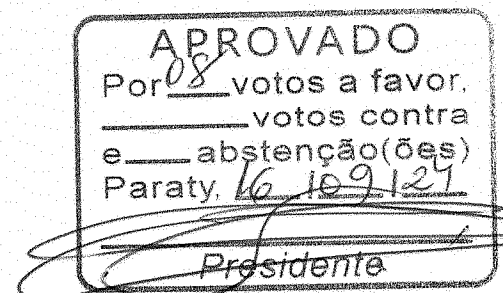 APROVADO
Por 08 votos a favor,
votos contra
e abstenção(ões)
Paraty, 16/09/24
Presidente